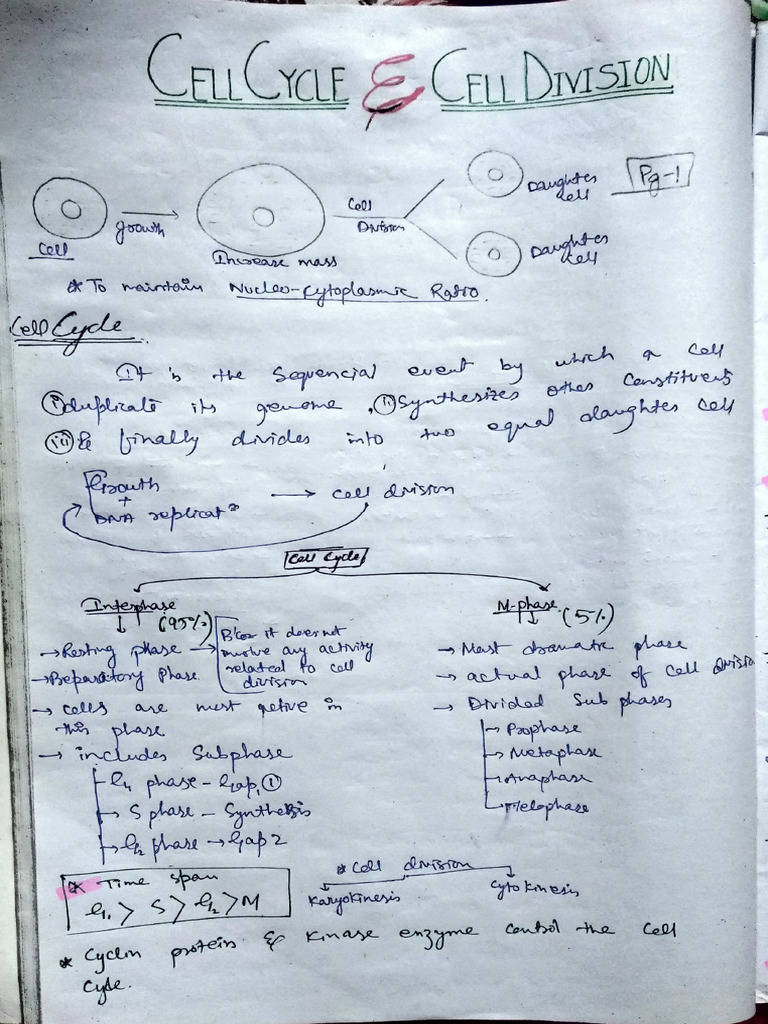 CELL CYCLE & CELL DIVISION
Pg-1
Cell
growth
Increase mass
Cell Division
Daughter cell
Daughter cell
* To maintain Nucleo-Cytoplasmic Ratio.
Cell Cycle
It is the sequencial event by which a cell
(i) duplicate its genome, (ii) Synthesizes other constituents
(iii) & finally divides into two equal daughter cell
Growth + DNA replicatn → cell division
Cell Cycle
Interphase (95%)
→ Resting phase → B'coz it does not involve any activity related to cell division
→ Preparatory Phase
→ cells are most active in
this phase
→ includes Subphase
G1 phase - Gap 1
→ S phase - Synthesis
→ G2 phase → Gap 2
M-phase (5%)
→ Most dramatic phase
→ actual phase of cell division
→ Divided Sub phases
→ Prophase
→ Metaphase
→ Anaphase
→ Telophase
* Time span
G1 > S > G2 > M
* Cell division
Karyokinesis
Cytokinesis
* Cyclin protein & kinase enzyme control the cell
cycle.